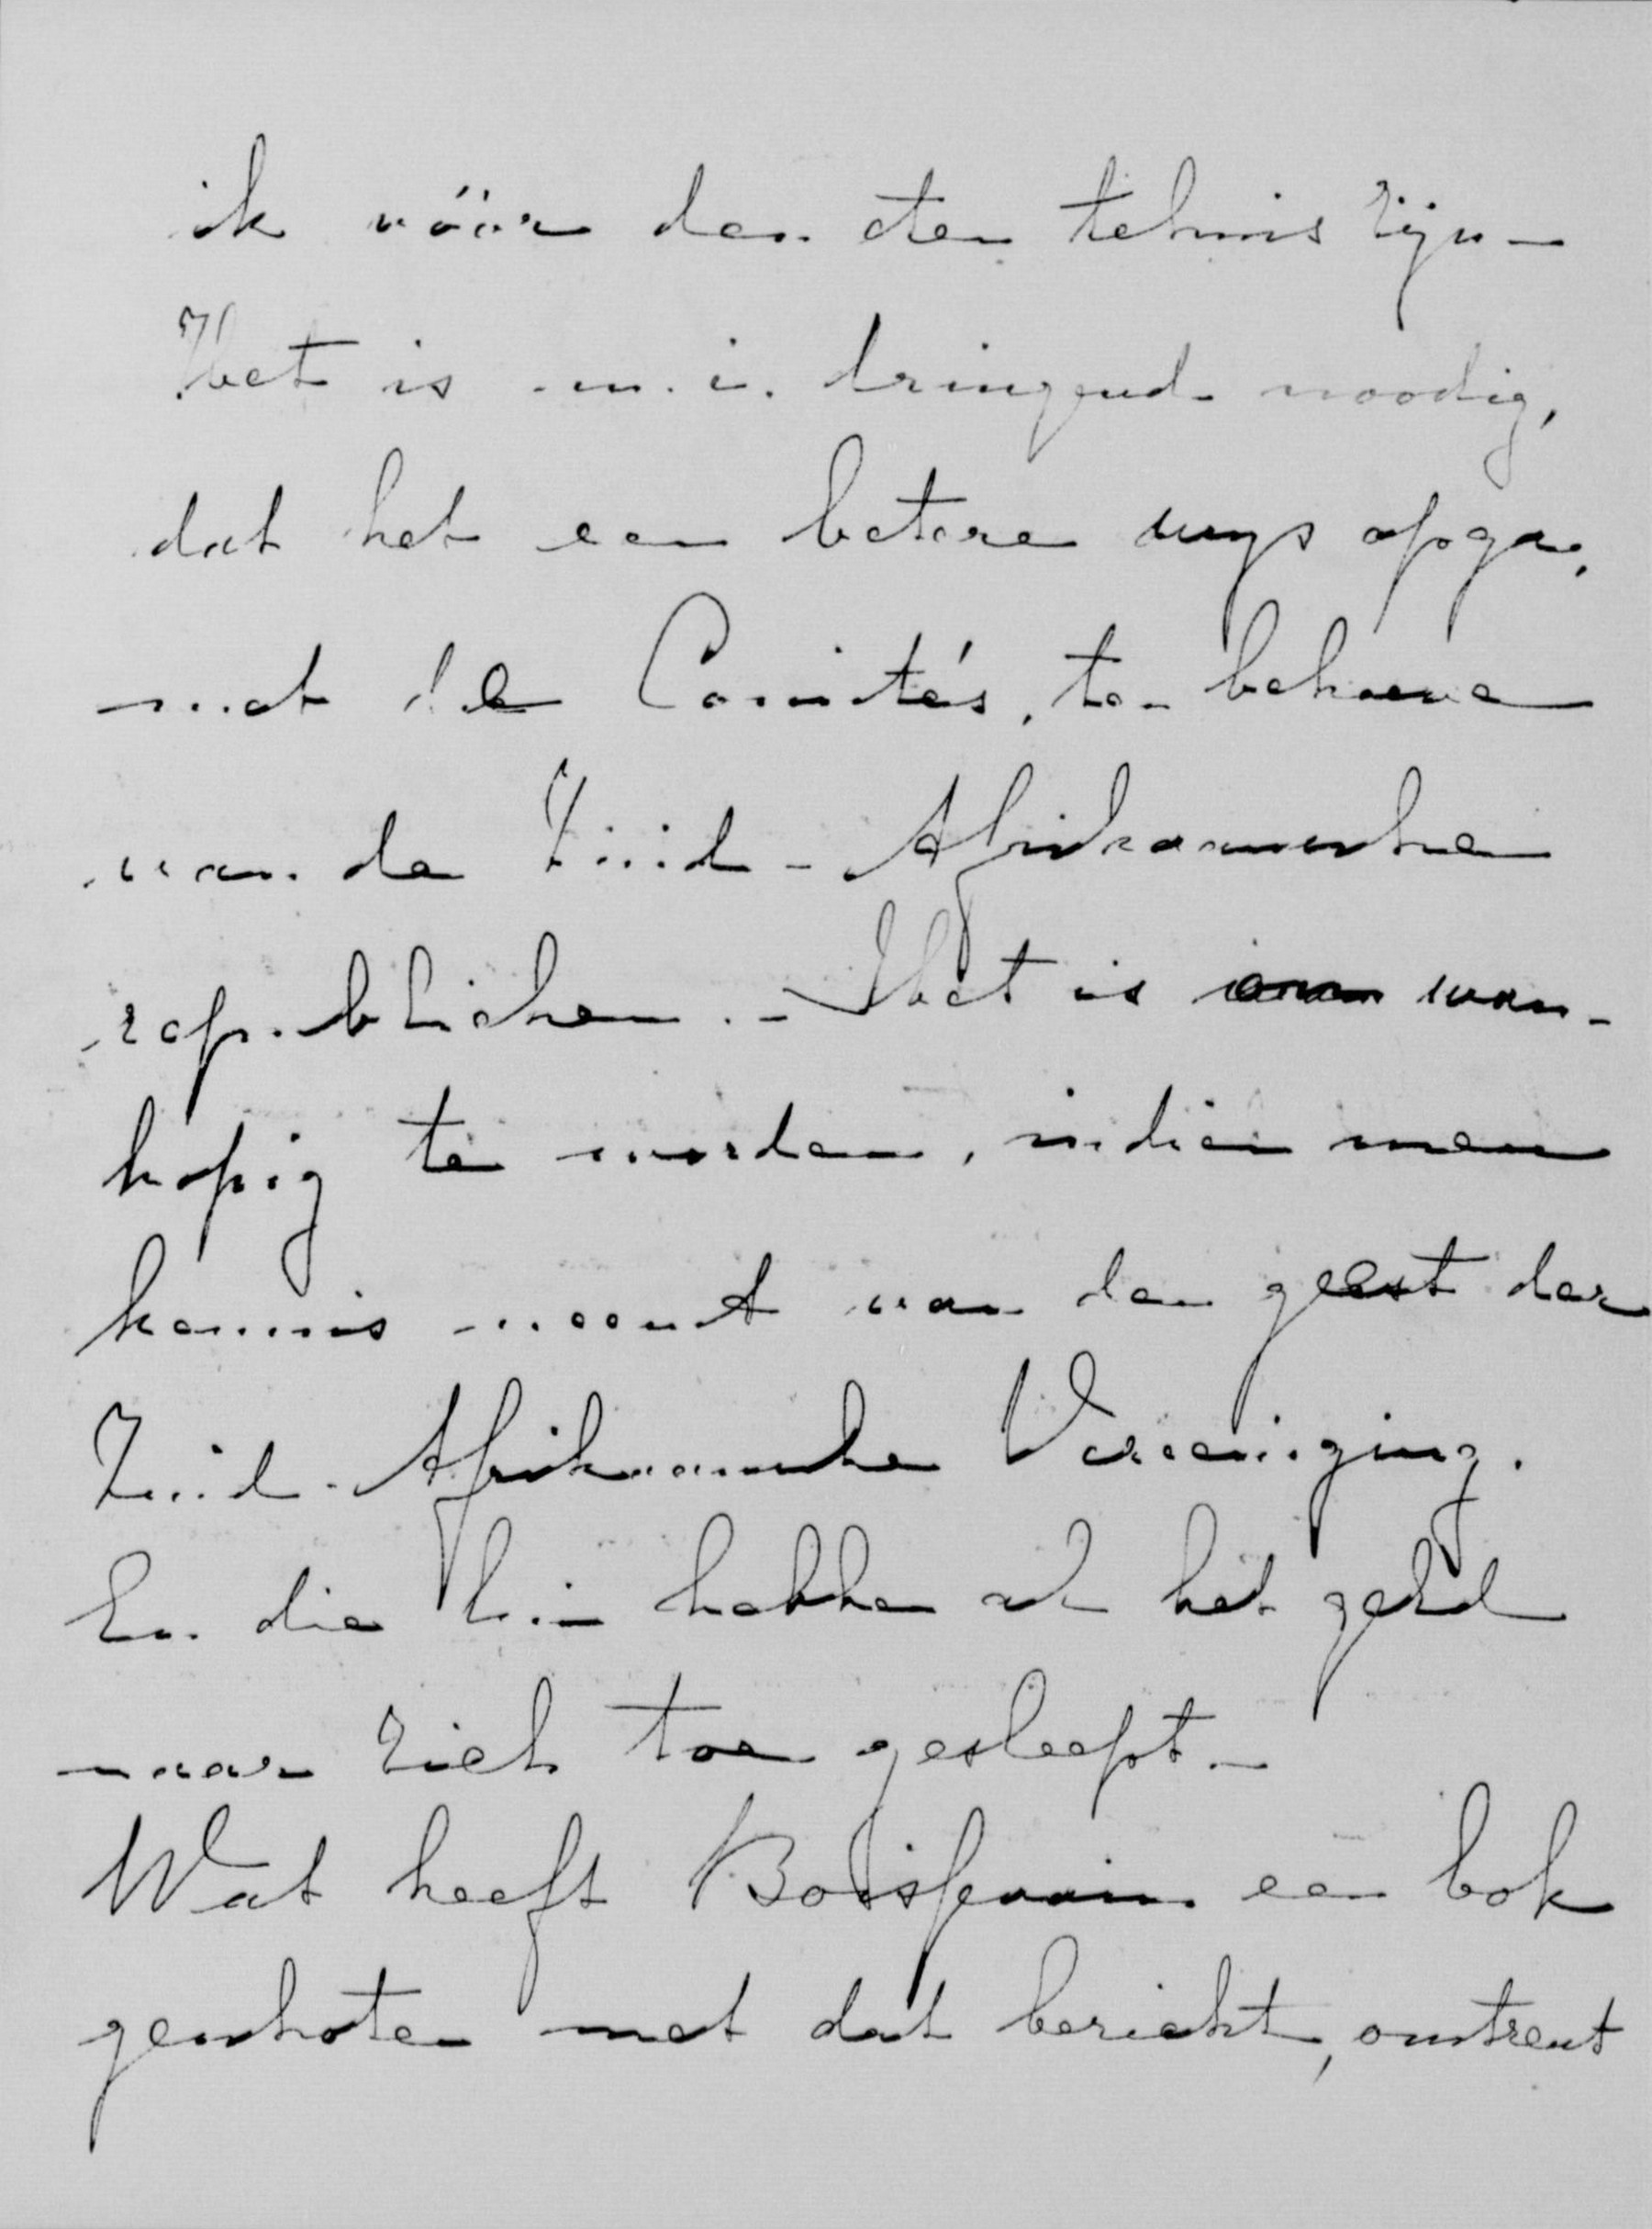 ik vóór den eten tehuis zijn –
Het is m.i. dringend noodig,
dat het een betere wijs opga,
met de Comités, ten behoeve
van de Zuid-Afrikaansche
republieken. – Het is om wan-
hopig te worden, indien men
kennis neemt van den geest der
Zuid-Afrikaansche Vereeniging.
En die lui hebben al het geld
naar zich toe gesleept. –
Wat heeft Boissevain een bok
geschoten met dat bericht, omtrent